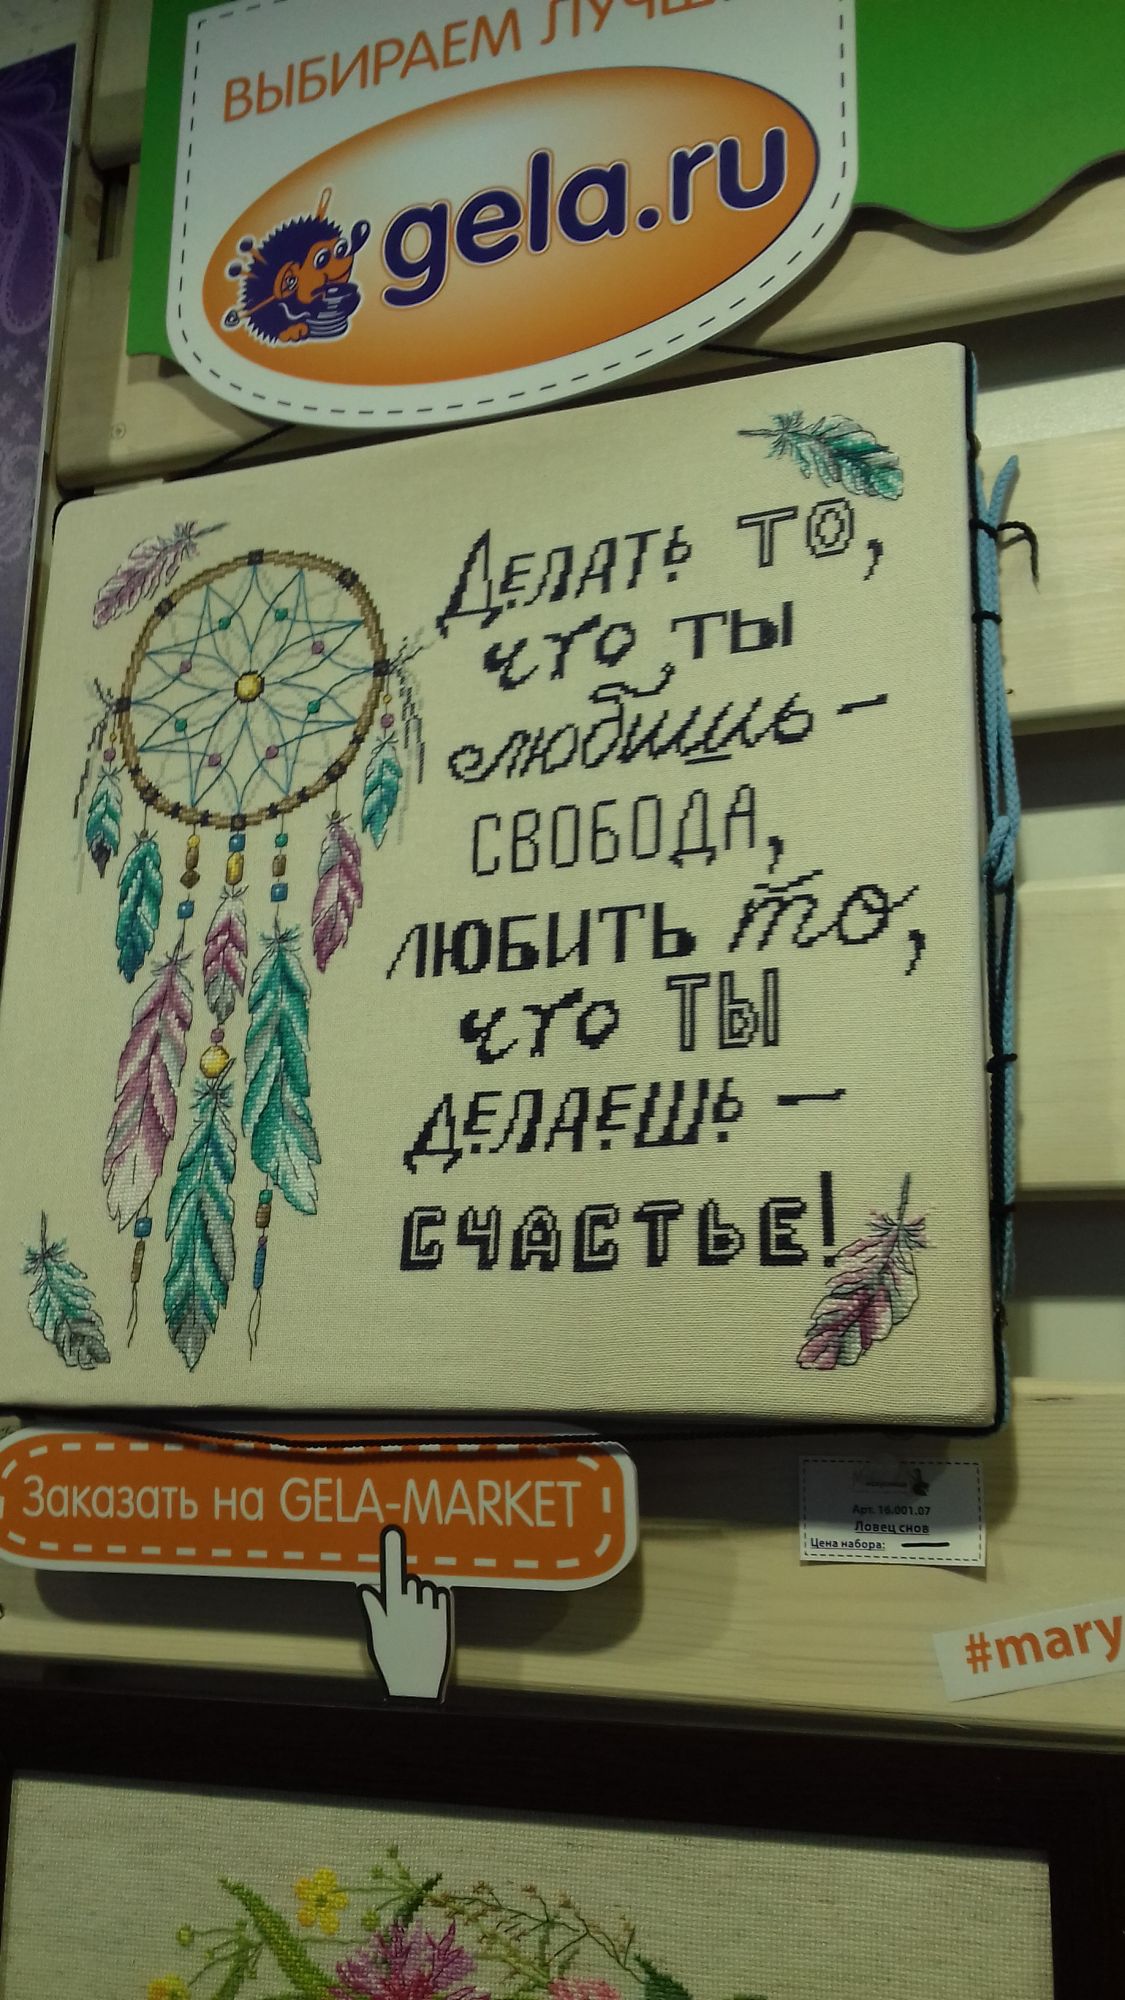 ВЫБИРАЕМ
gela.ru
Делать то,
что ты
любишь -
свобода,
любить то,
что ты
делаешь -
счастье!
Заказать на GELA-MARKET
Арт. 16.001.07
Ловец снов
Цена набора:
#mary